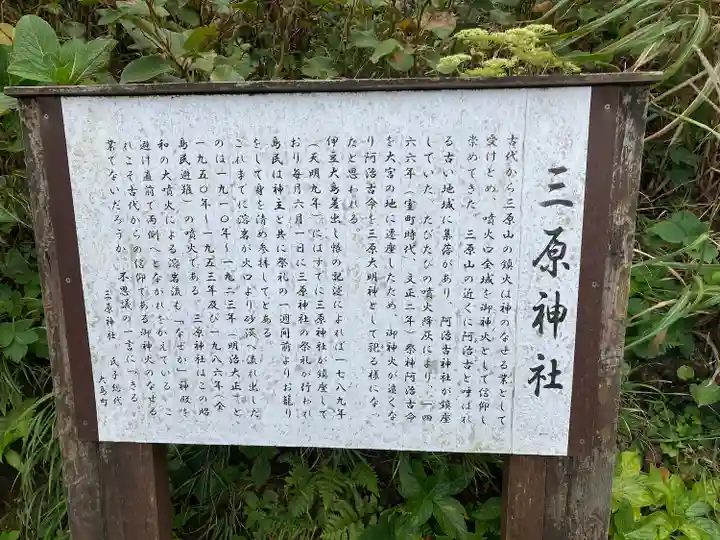 三原神社
古代から三原山の鎮火は神のなせる業として
受けとめ、噴火口全域を御神火として信仰し
崇めてきた。三原山の近くに阿治古と呼ばれ
る古い地域に集落があり、阿治古神社が鎮座
していた。たびたびの噴火降灰により、一四
六六年(室町時代、文正二年)祭神阿治古命
を大宮の地に遷座したため、御神火が遠くな
り阿治古命を三原大明神として祀る様にな
たと思われる。
伊豆大島差出し帳の記述によれば一七八九年
(天明九年)にはすでに三原神社が鎮座して
おり毎年六月一日に三原神社の祭礼が行われ
島民は神主と共に祭礼の一週間前よりお籠り
をして身を清め参拝してとある。
これまでに溶岩が火口より砂漠へ流れ出した
のは一九一〇年~一九二三年(明治大正)と
一九五〇年~一九五三年及び一九八六年(全
島民避難)の噴火である。三原神社はこの昭
和の大噴火による溶岩流も「なぜか」神殿を
避け直前で両側へとながれをかえている。こ
れこそ古代からの信仰である御神火のなせる
業でないだろうか、不思議の一言につきる
三原神社 氏子総代
大島町